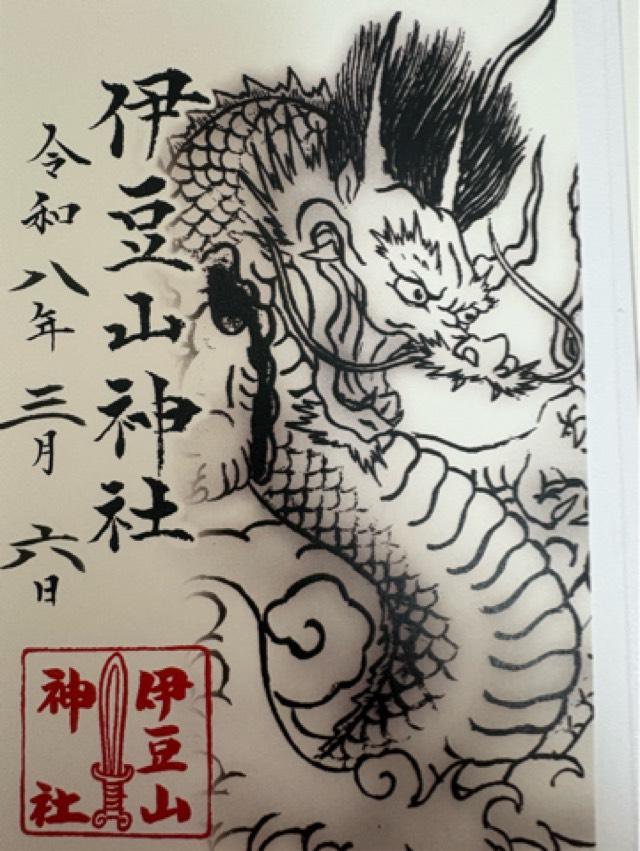 伊豆山神社
令和八年三月六日
伊豆山
神社